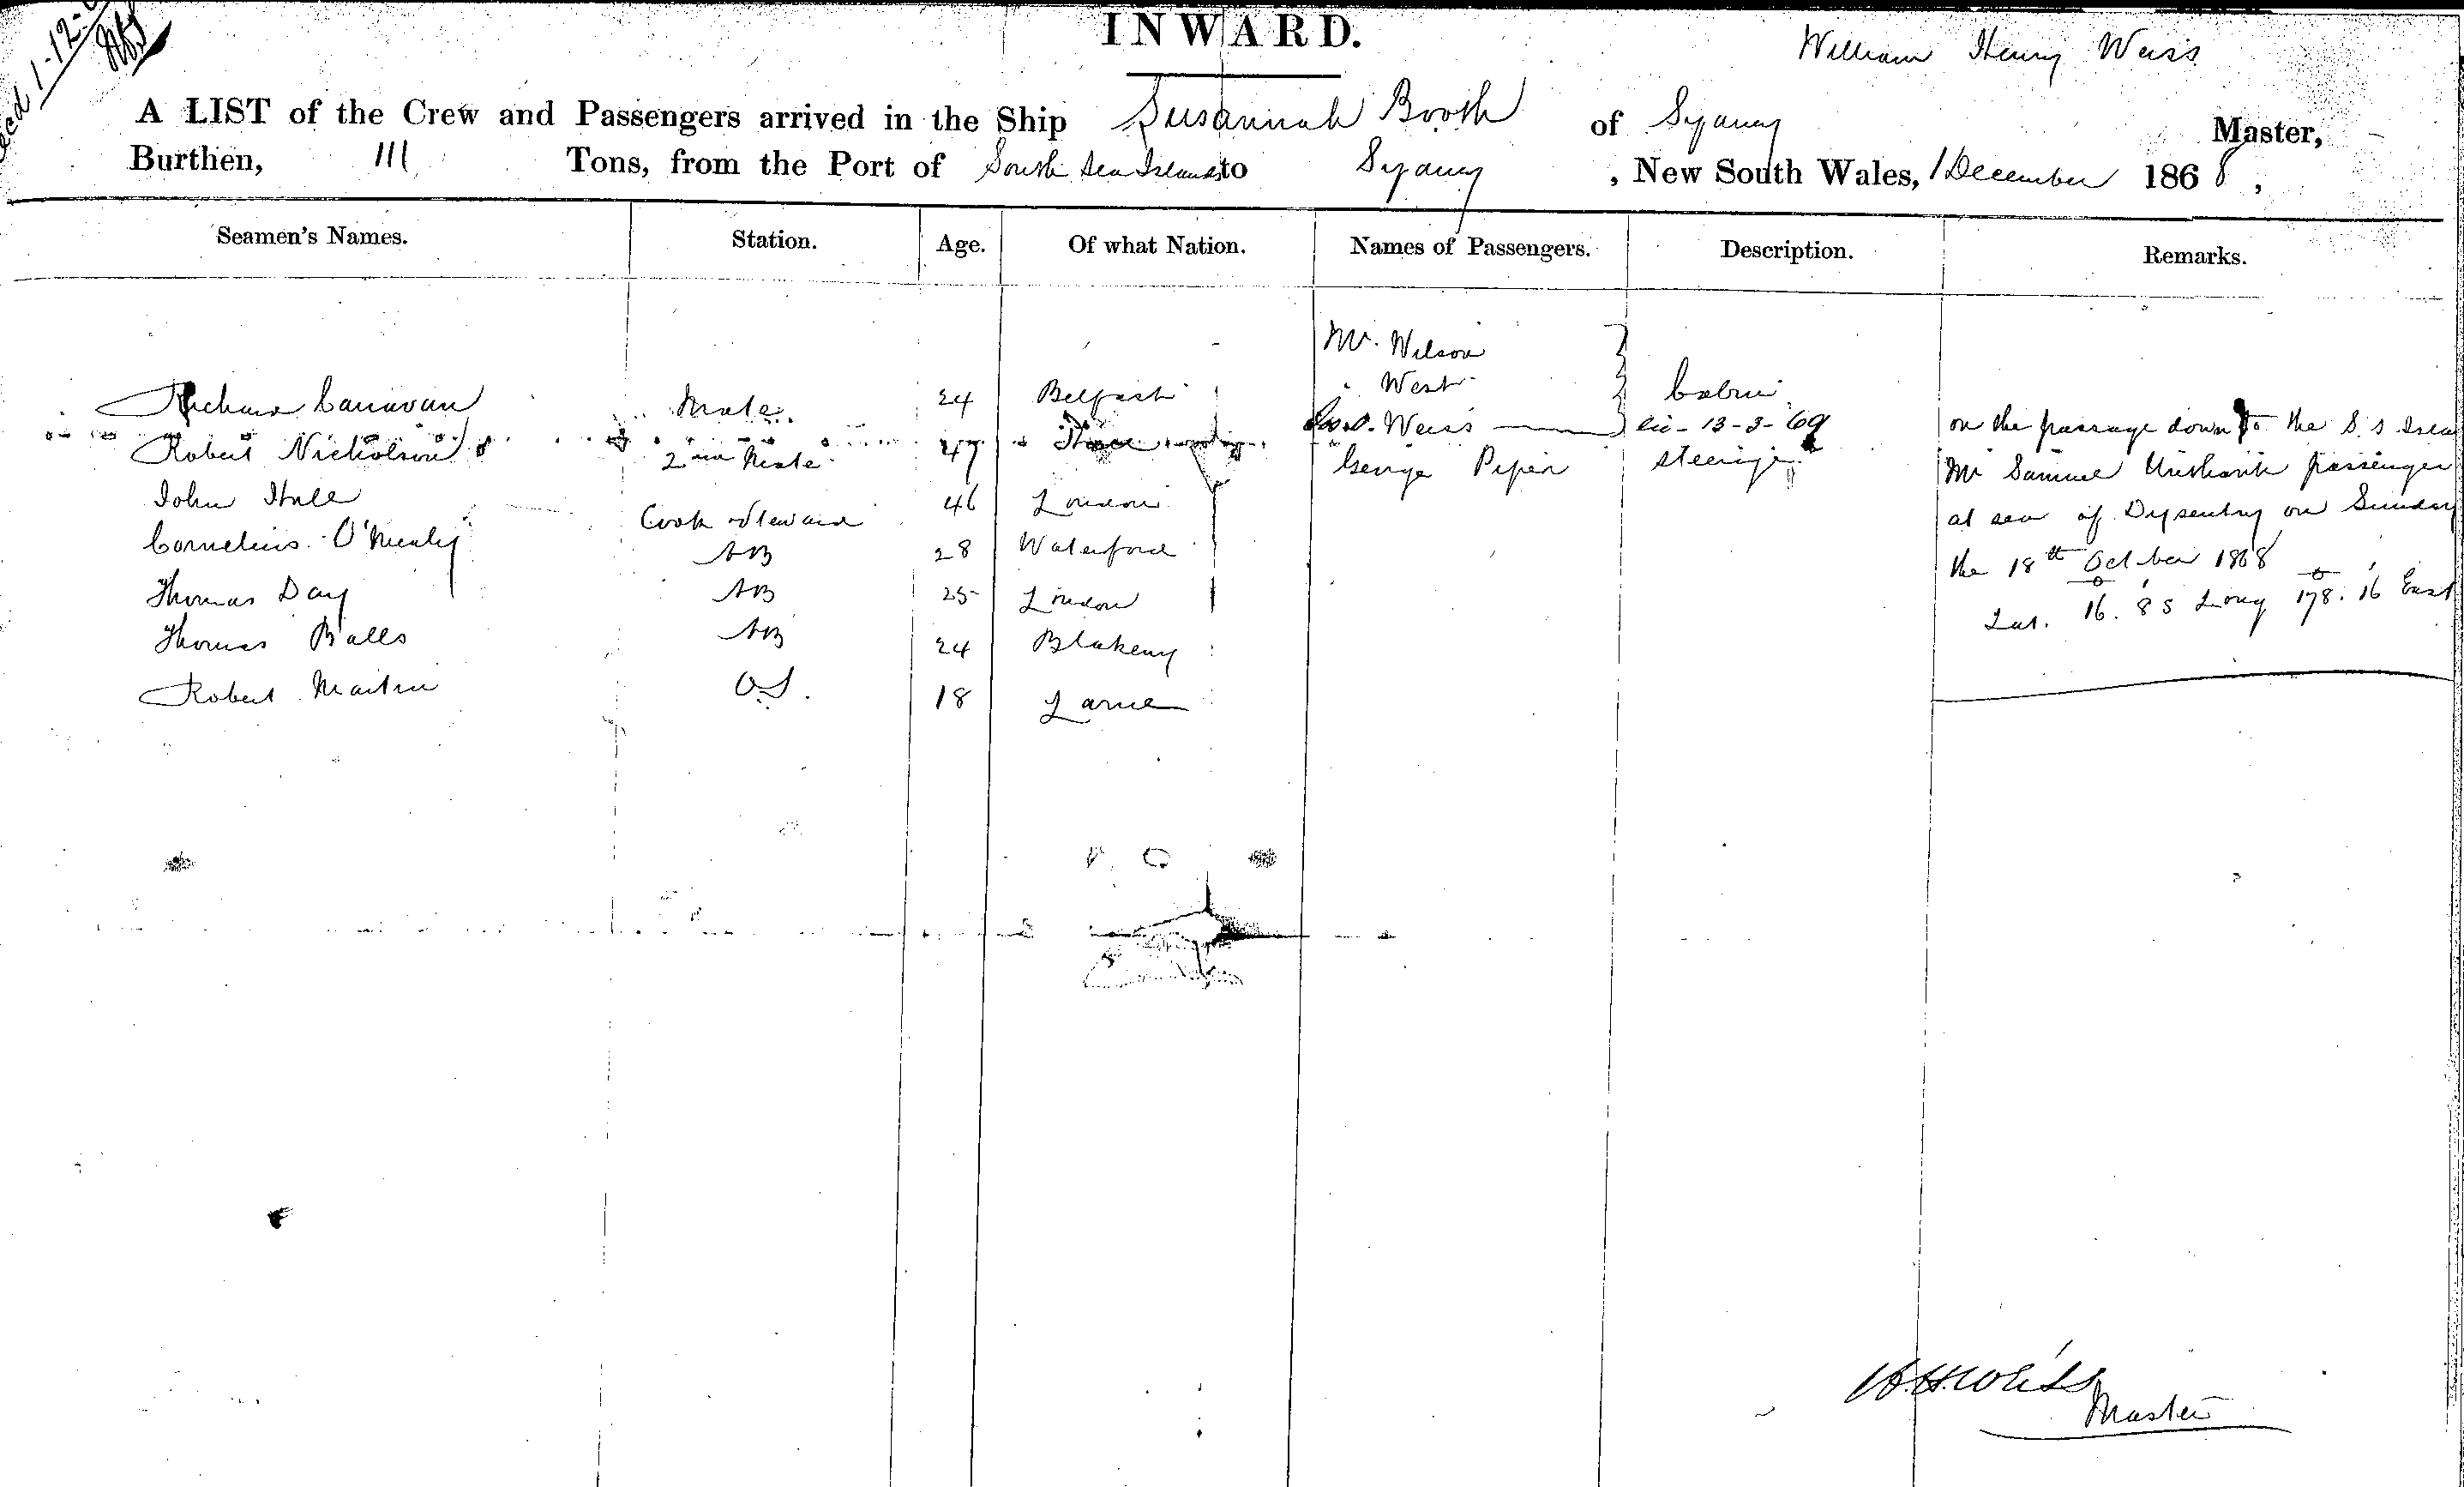 INWARD.
William Henry Weiss
A LIST of the Crew and Passengers arrived in the Ship Susannah Booth of Sydney Master,
Burthen, 111 Tons, from the Port of South Sea Islands to Sydney, New South Wales, 1 December 1868,
Seamen's Names. Station. Age. Of what Nation. Names of Passengers. Description. Remarks.
Mr. Wilson
Richard Canavan Mate 24 Belfast " West Cabin
Robert Nicholson 2nd Mate 47 Weiss 13-3-69 on the passage down to the S. S Isla
John Hall Cook & Steward 46 London George Piper steerage Mr Samuel passenger
Cornelius O'Nealy AB 28 Waterford at sea of Dysentry on Sunday
Thomas Day AB 25 London the 18th October 1868
Thomas Balls AB 24 Blakeny Lat. 16. 8 S Long 178. 16 East
Robert Martin OS. 18 Larne
W.H. Weiss
Master